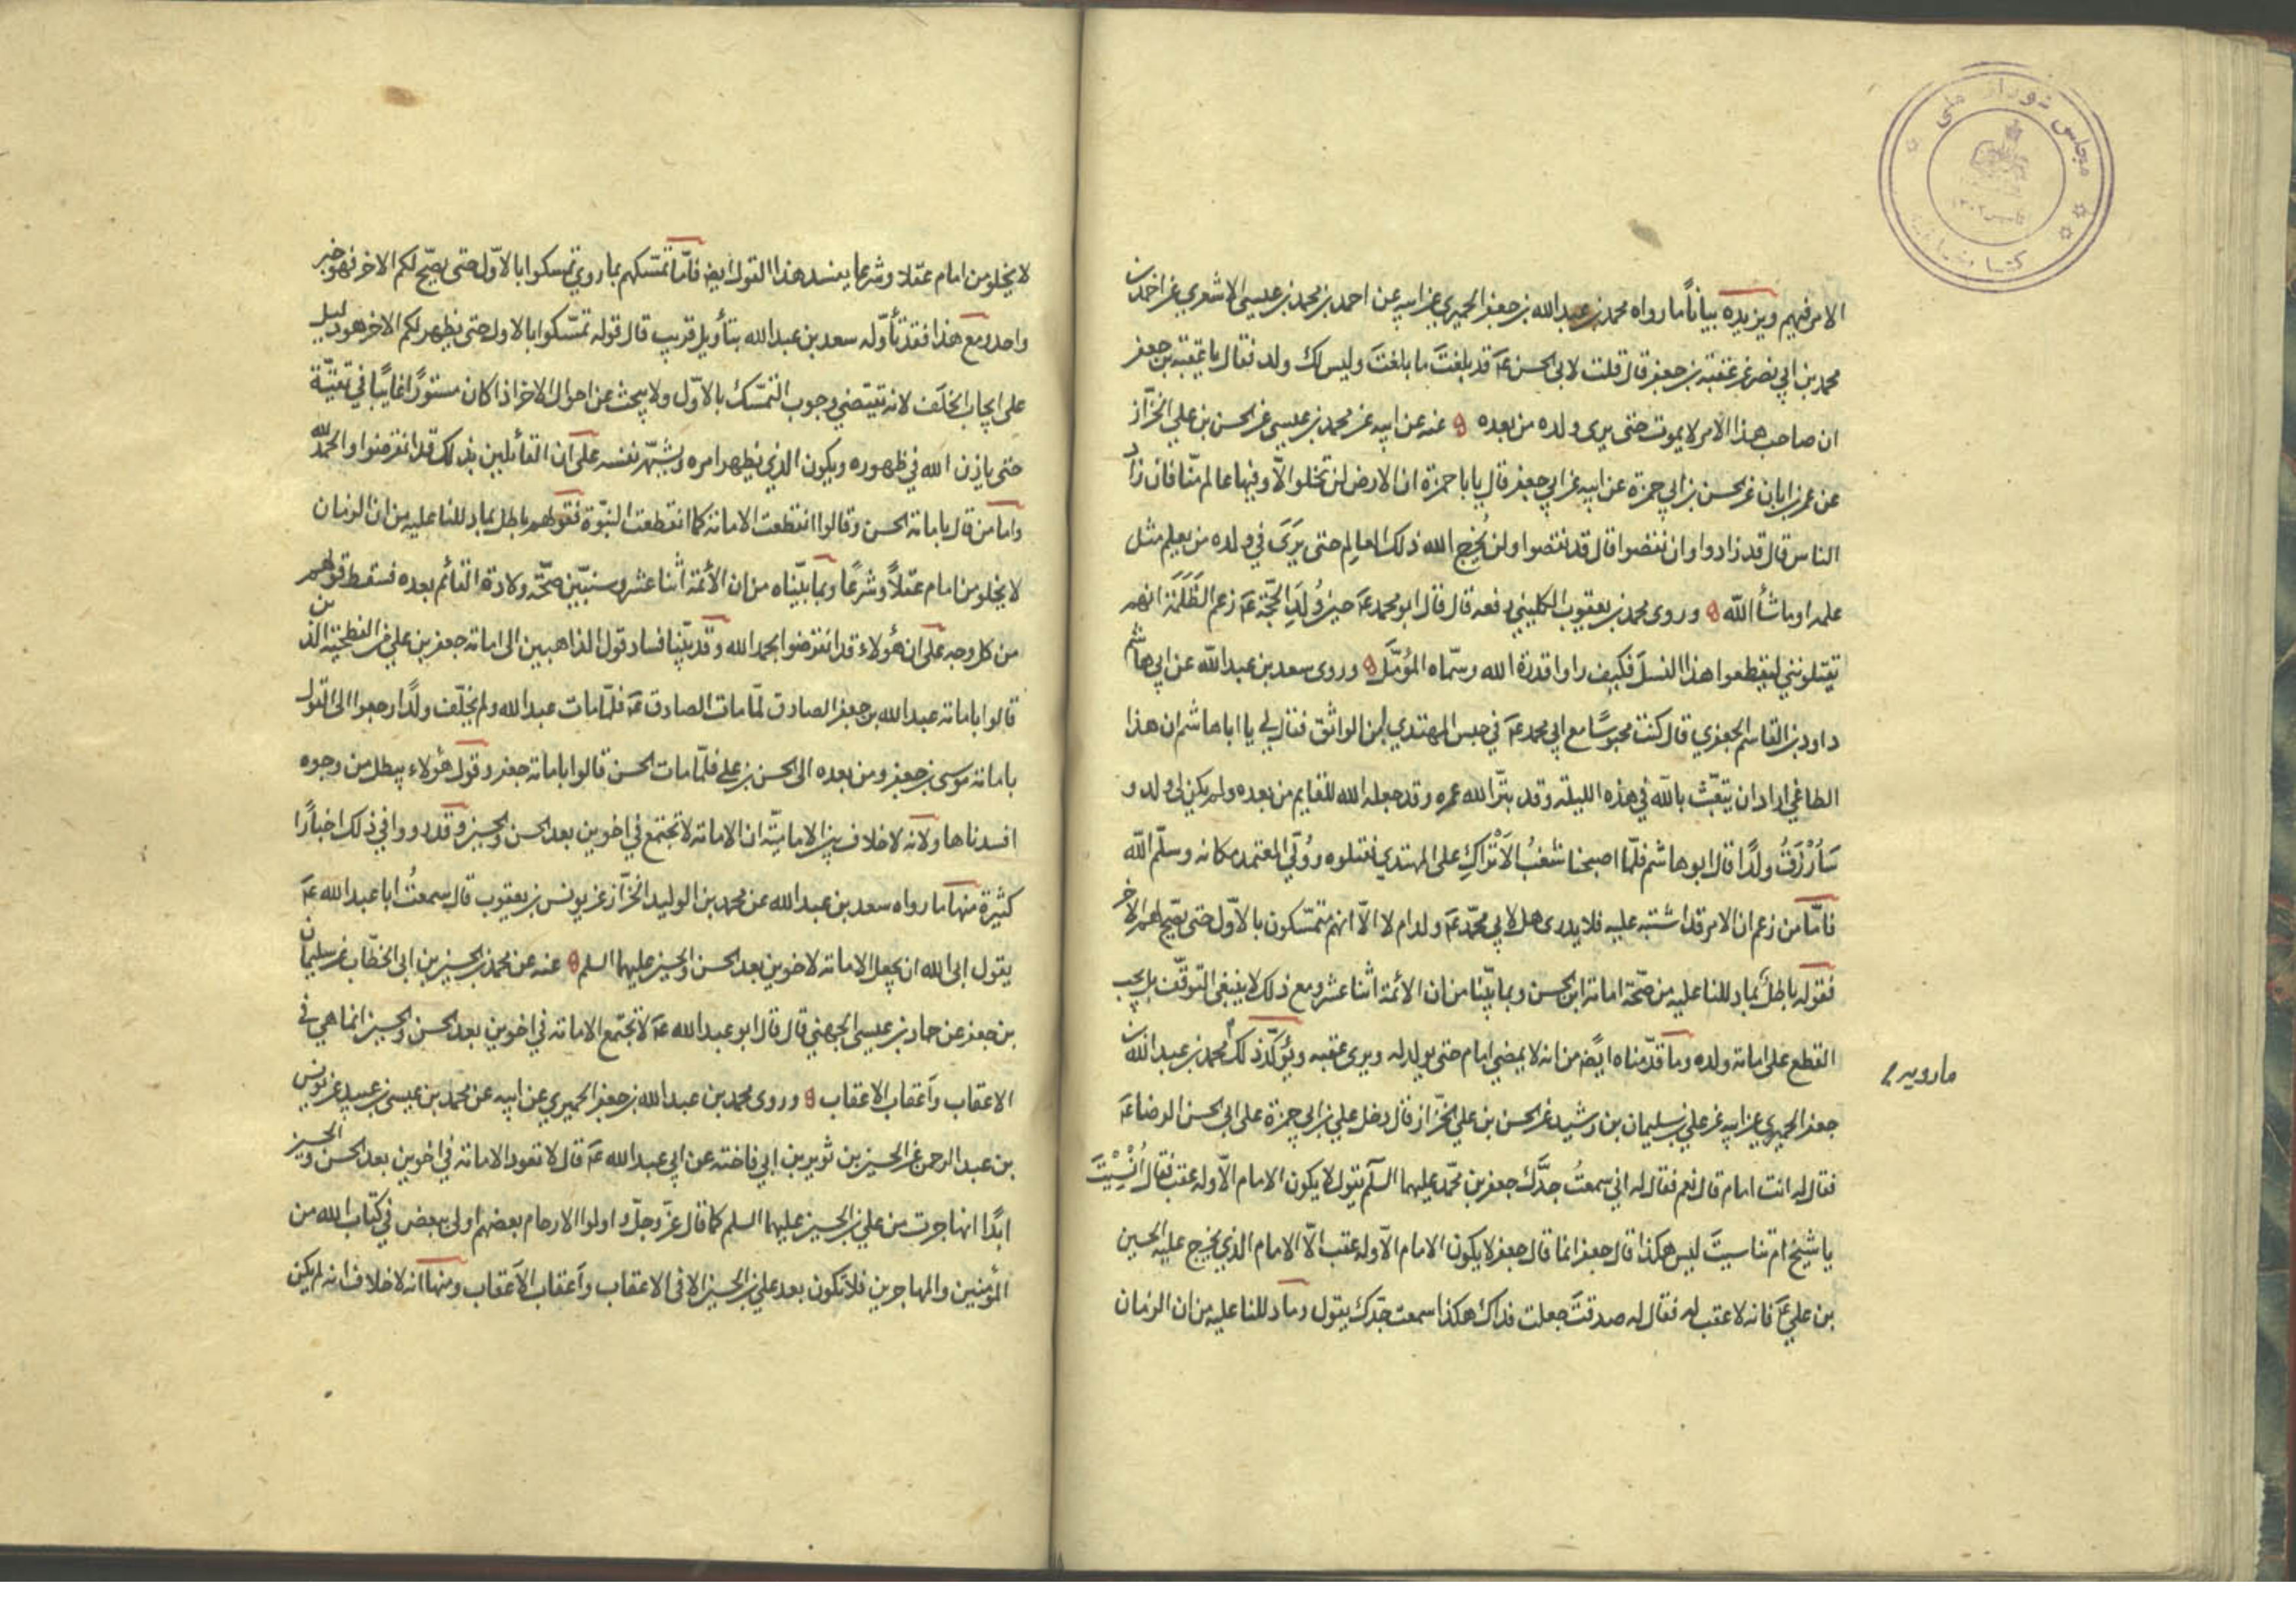 مجلس شورای ملی
الامر فيهم ويزيده بياناً ما رواه محمد بن عبد الله بن جعفر الحميري عن ابيه عن احمد بن محمد بن عيسى الاشعري عن احمد بن
محمد بن ابي نصر عن عقبة بن جعفر قال قلت لابى الحسن عَه قد بلغتَ ما بلغتَ وليس لك ولد فقال يا عقبة بن جعفر
ان صاحب هذا الامر لا يموت حتى يرى ولده من بعده عنه عن ابيه عن محمد بن عيسى عن الحسن بن علي الخزّاز
عن عمر بن ابان عن الحسن بن ابي حمزة عن ابيه عن ابي جعفر قال يا با حمزة ان الارض لن تخلوا الّا وفيها عالم منّا فان زاد
الناس قال قد زادوا وان نقصوا قال قد نقصوا ولن يُخرج الله ذلك العالِم حتى يَرَى في ولده من يعلم مثل
علمه او ما شأ اللّه وروى محمد بن يعقوب الكليني رفعه قال قال ابو محمد عَه حين وُلِدَ الحجّة عَه زعم الظَلَمَة انهم
يقتلوننى ليقطعوا هذا النسلَ فكيف راوا قدرة الله وسمّاه المؤمَّل وروى سعد بن عبد اللّه عن ابي هاشم
داود بن القاسم الجعفري قال كنت محبوسًا مع ابي محمد عَه في حبس المهتدي بن الواثق فقال لي يا ابا هاشم ان هذا
الطاغي اراد ان يتعبّث باللّه في هذه الليلة وقد بتّر الله عمره وقد جعله الله للقايم من بعده ولم يكن لى ولد و
سَاُرْزَقُ ولدًا قال ابو هاشم فلمّا اصبحنا شغبُ الاَتْراكِ على المهتدي فقتلوه ووُلّي المعتمد مكانه وسلّم اللّه
فامّا من زعم ان الامر قد اشتبه عليه فلا يدرى هل لابي محمّد عَه ولد ام لا الّا انهم متمسّكون بالاوّل حتى يصحّ لهم الاخر
فقوله باطلٌ بما دللنا عليه من صحّة امامة ابن الحسن وبما بيّنا من ان الائمة اثنا عشر ومع ذلك لا ينبغى التوقّف بل يجب
القطع على امامة ولده وما قدّمناه ايضًا من انه لا يمضي امام حتى يولد له ويرى عقبه ويؤكّد ذلك محمد بن عبد اللّه بن
ما رويه
جعفر الحميري عن ابيه عن علي بن سليمان بن رشيد عن الحسن بن علي الخزّاز قال دخل علي بن ابي حمزة على ابى الحسن الرضا عَه
فقال له انت امام قال نعم فقال له انى سمعتُ جدَّك جعفر بن محمّد عليهما السلَم يقول لا يكون الامام الّا وله عقب فقال اَنَسِيْتَ
يا شيخ ام تناسيتَ ليس هكذا قال جعفر انما قال جعفر لا يكون الامام الّا وله عقب الّا الامام الذي يخرج عليه الحسين
بن علي عَه فانه لا عقب له فقال له صدقتَ جعلت فداك هكذا سمعت جدّك يقول وما دللنا عليه من ان الزمان
لا يخلو من امام عقلا وشرعا يفسد هذا القول ايضا فامّا تمسّكهم بما روي تمسكوا بالاوّل حتى يصحّ لكم الاخر فهو خبر
واحد ومع هذا فقد تأوّله سعد بن عبد الله بتأويل قريب قال قوله تمسّكوا بالاول حتى يظهر لكم الاخر هو دليل
على ايجاب الخلَف لانه يقتضي وجوب التمسّك بالاوّل ولا يبحث عن احوال الاخر اذا كان مستورًا غايبًا في تقيّة
حتى ياذن الله في ظهوره ويكون الذي يظهر امره ويشهّر نفسه على ان القائلين بذلك قد انقرضوا والحمد لله
واما من قال بامامة الحسن وقالوا انقطعت الامامة كما انقطعت النبوّة فقولهم باطل بما دللنا عليه من ان الزمان
لا يخلو من امام عقلًا وشرعًا وبما بيّناه من ان الأئمة اثنا عشر وسنبيّن صحّة ولادة القائم بعده فسقط قولهم
من كل وجه على ان هؤلاء قد انقرضوا بحمد الله وقد بيّنا فساد قول الذاهبين الى امامة جعفر بن علي من الفطحية الذين
قالوا بامامة عبد الله بن جعفر الصادق لمّا مات الصادق عَه فلمّا مات عبد الله ولم يخلّف ولدًا رجعوا الى القول
بامامة موسى بن جعفر ومن بعده الى الحسن بن على فلمّا مات الحسن قالوا بامامة جعفر وقول هؤلاء يبطل من وجوه
افسدناها ولانه لا خلاف بين الاماميّة ان الامامة لا تجتمع في اخوين بعد الحسن والحسين وقد رووا في ذلك اخبارًا
كثيرة منها ما رواه سعد بن عبد الله عن محمد بن الوليد الخزّاز عن يونس بن يعقوب قال سمعتُ ابا عبد الله عَه
يقول ابى الله ان يجعل الامامة لاخوين بعد الحسن والحسين عليهما السلم عنه عن محمد بن الحسين بن ابى الخطّاب عن سليمان
بن جعفر عن حماد بن عيسى الجهني قال قال ابو عبد الله عَه لا تجتمع الامامة في اخوين بعد الحسن والحسين انما هي فى
الاعقاب وأَعقاب الاعقاب وروى محمد بن عبد الله بن جعفر الحميري عن ابيه عن محمد بن عيسى بن عبيد عن يونس
بن عبد الرحمن عن الحسين بن ثوير بن ابي فاخته عن ابي عبد الله عَه قال لا تعود الامامة في اخوين بعد الحسن والحسين
ابدًا انها جرت من علي بن الحسين عليهما السلم كما قال عزّ وجلّ واولوا الارحام بعضهم اولى ببعض في كتاب الله من
المؤمنين والمهاجرين فلا تكون بعد علي بن الحسين الا فى الاعقاب وأعقاب الأَعقاب ومنها انه لا خلاف انه لم يكن